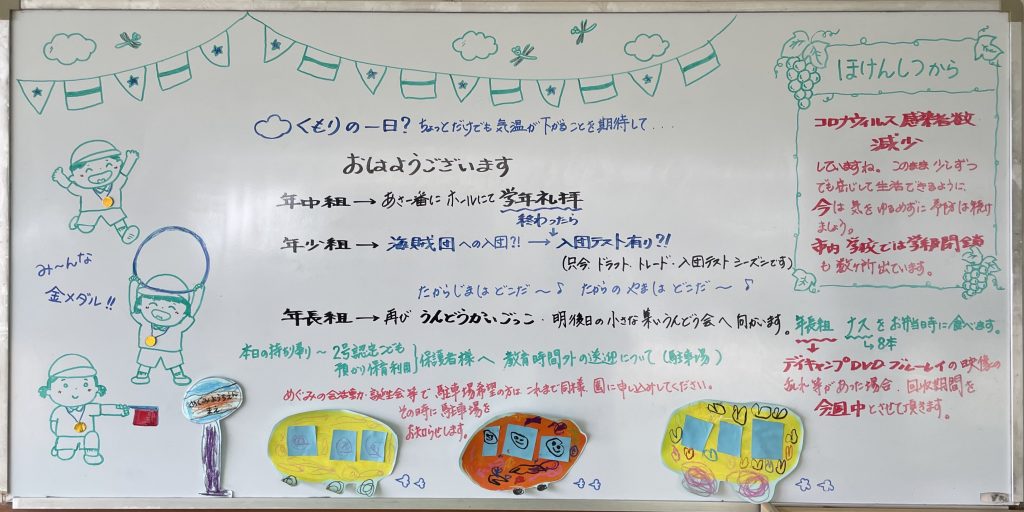 くもりの一日? ちょっとだけでも気温が下がることを期待して...
おはようございます
年中組→あさ一番にホールにて学年礼拝
終わったら
年少組→海賊団への入団?!→入団テスト有り?!
(只今ドラフト、トレード・入団テストシーズンです)
たからじまはどこだ～♪ たからのやまはどこだ～♪
年長組→再びうんどうかいごっこ・明後日の小さな集いうんどう会へ向かいます。
本日の持ち帰り～2号認定こども
預かり保育利用
保護者様へ 教育時間外の送迎について(駐車場)
めぐみの会活動・誕生会等で駐車場希望の方はこれまで同様 園に申し込みしてください。
その時に駐車場を
お知らせします。
み～んな
金メダル!!
ほけんしつから
コロナウィルス感染者数
減少
していますね。このまま少しずつ
でも安心して生活できるように
今は気をゆるめずに予防は続け
ましょう。
市内学校では学級閉鎖
も数ヶ所出ています。
年長組 ナスをお弁当時に食べます。
→8本
デイキャンプDVDブルーレイの映像の
乱れ等があった場合、回収期間を
今週中とさせて頂きます。